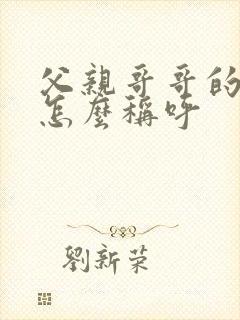 父親哥哥的
怎麼稱呼
劉新榮